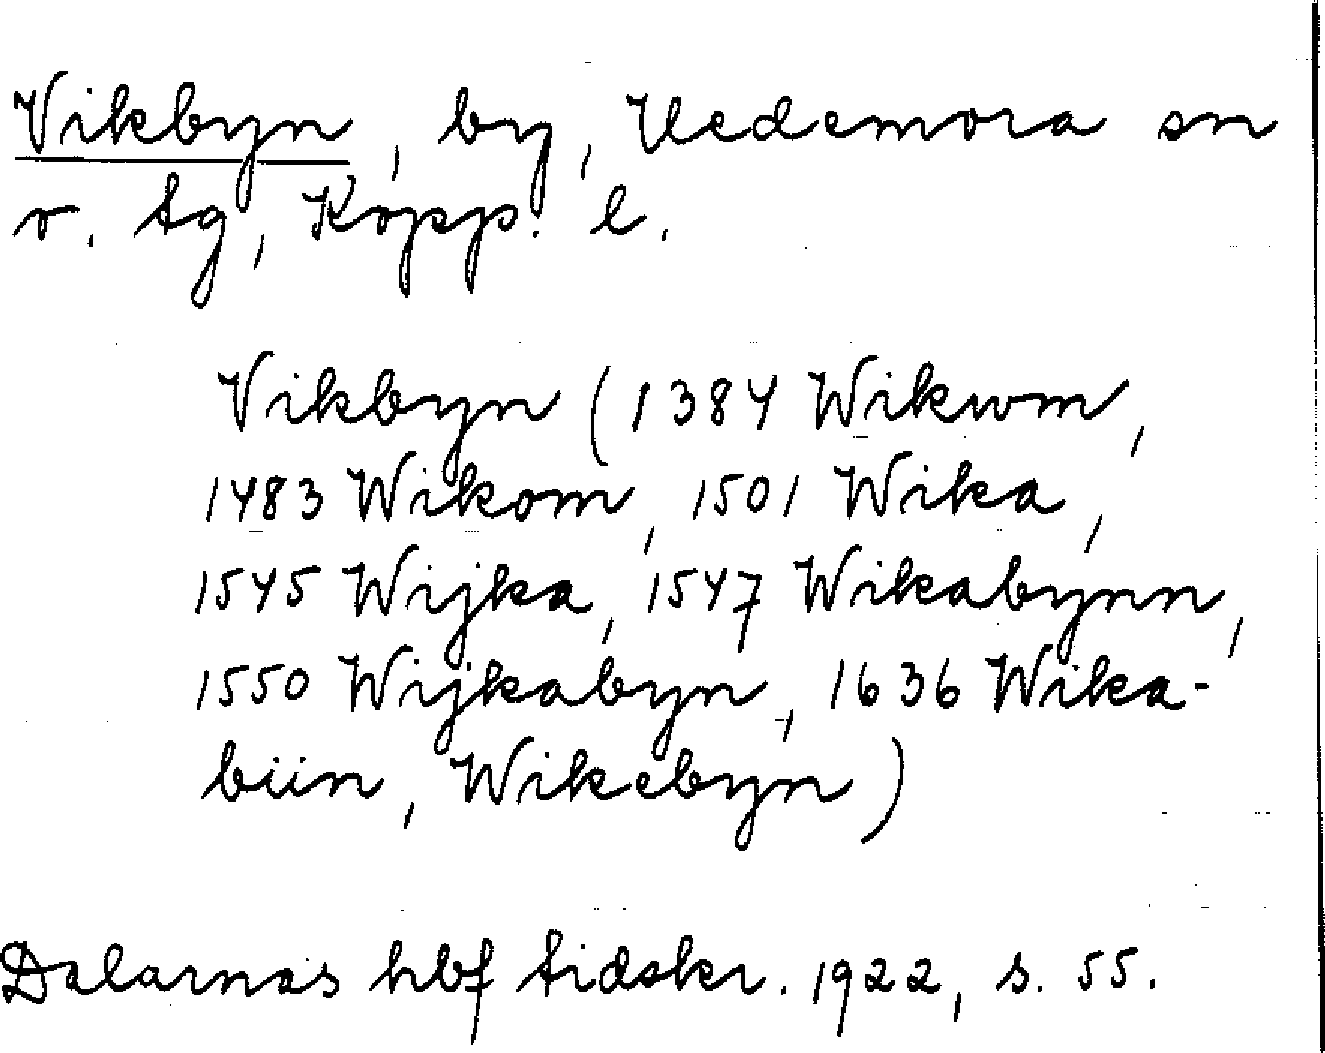 Vikbyn, by, Hedemora sn
o. tg, Kopp. l.
Vikbyn (1384 Wikwm,
1483 Wikom, 1501 Wika,
1545 Wijka, 1547 Wikabynn,
1550 Wijkabyn, 1636 Wika-
biin, Wikebyn)
Dalarnas hbf tidskr. 1922, s. 55.